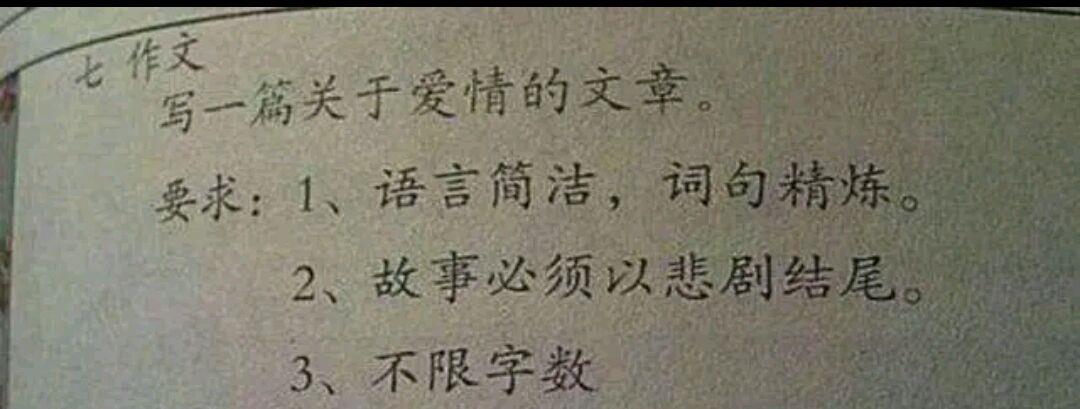 七 作文
写一篇关于爱情的文章。
要求：1、语言简洁，词句精炼。
2、故事必须以悲剧结尾。
3、不限字数